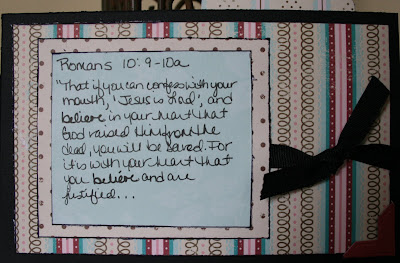 Romans 10:9-10a
"That if you can confess with your
mouth, 'Jesus is Lord,' and
believe in your heart that
God raised Him from the
dead, you will be saved. For
it is with your heart that
you believe and are
justified...